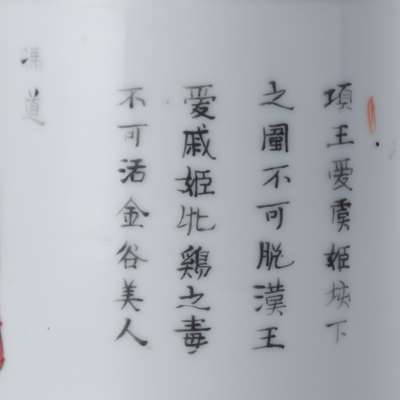 項王爱虞姬垓下
之圍不可脱漢王
爱戚姬牝鶏之毒
不可活金谷美人
道